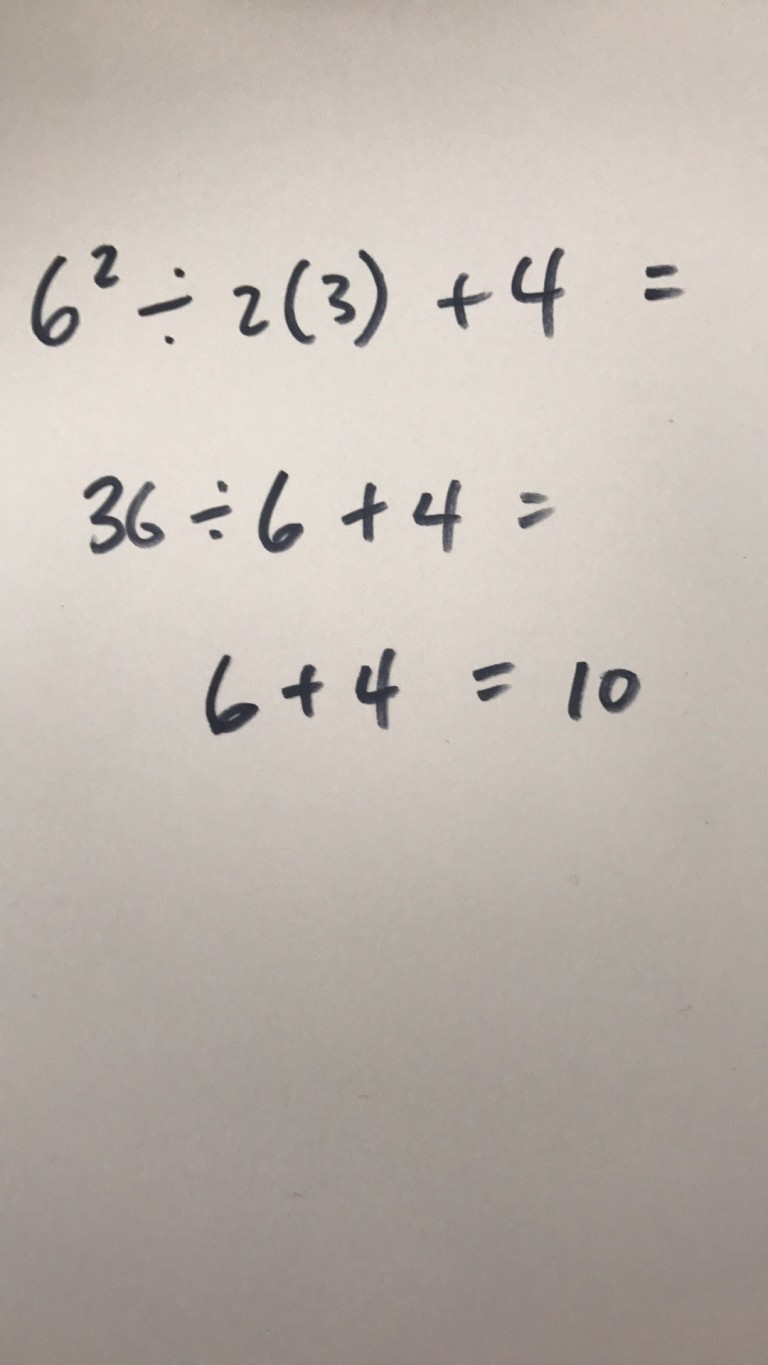 6² ÷ 2(3) + 4 =
36 ÷ 6 + 4 =
6 + 4 = 10